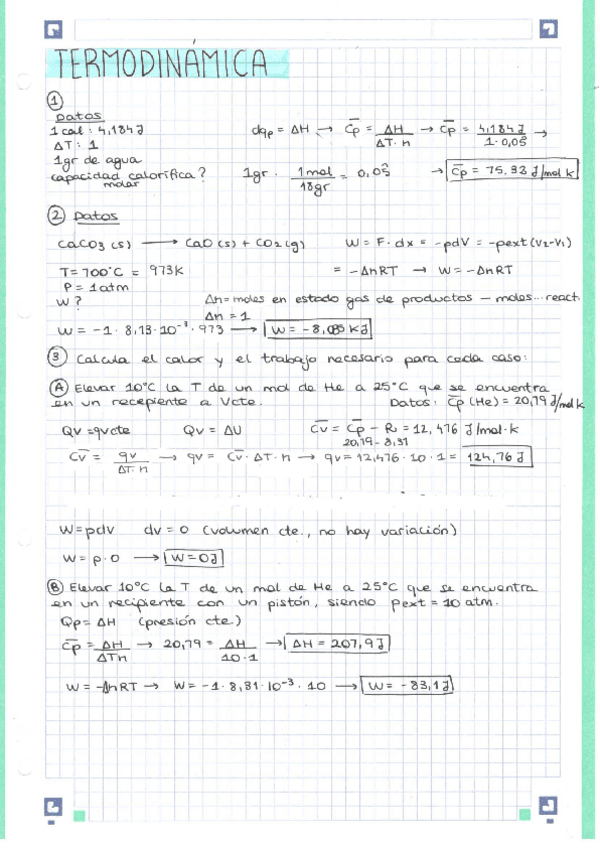 TERMODINÁMICA
①
Datos
1 cal : 4,184 J
ΔT : 1
1gr de agua
capacidad calorífica?
molar
dqp = ΔH → C̄p = ΔH / ΔT·n → C̄p = 4,184 J / 1·0,05̂ →
1gr · 1 mol / 18gr = 0,05̂ → C̄p = 75,32 J/mol k
② Datos
CaCO3 (s) → CaO(s) + CO2 (g) W = F·dx = -pdV = -pext (V2-V1)
T = 700°C = 973K = -ΔnRT → W = -ΔnRT
P = 1 atm
W? Δn = moles en estado gas de productos - moles... react.
Δn = 1
W = -1 · 8,13 · 10⁻³ · 973 → W = -8,085 KJ
③ Calcula el calor y el trabajo necesario para cada caso:
Ⓐ Elevar 10°C la T de un mol de He a 25°C que se encuentra
en un recepiente a Vcte. Datos: C̄p (He) = 20,79 J/mol k
Qv = qvcte Qv = ΔU C̄v = C̄p - R = 12,476 J/mol·k
20,79 - 8,31
C̄v = qv / ΔT·n → qv = C̄v · ΔT · n → qv = 12,476 · 10 · 1 = 124,76 J
W = pdv dv = 0 (volumen cte., no hay variación)
W = p·0 → W = 0 J
Ⓑ Elevar 10°C la T de un mol de He a 25°C que se encuentra
en un recipiente con un pistón, siendo Pext = 10 atm.
Qp = ΔH (presión cte.)
C̄p = ΔH / ΔTn → 20,79 = ΔH / 10·1 → ΔH = 207,9 J
W = -ΔnRT → W = -1 · 8,31 · 10⁻³ · 10 → W = -83,1 J